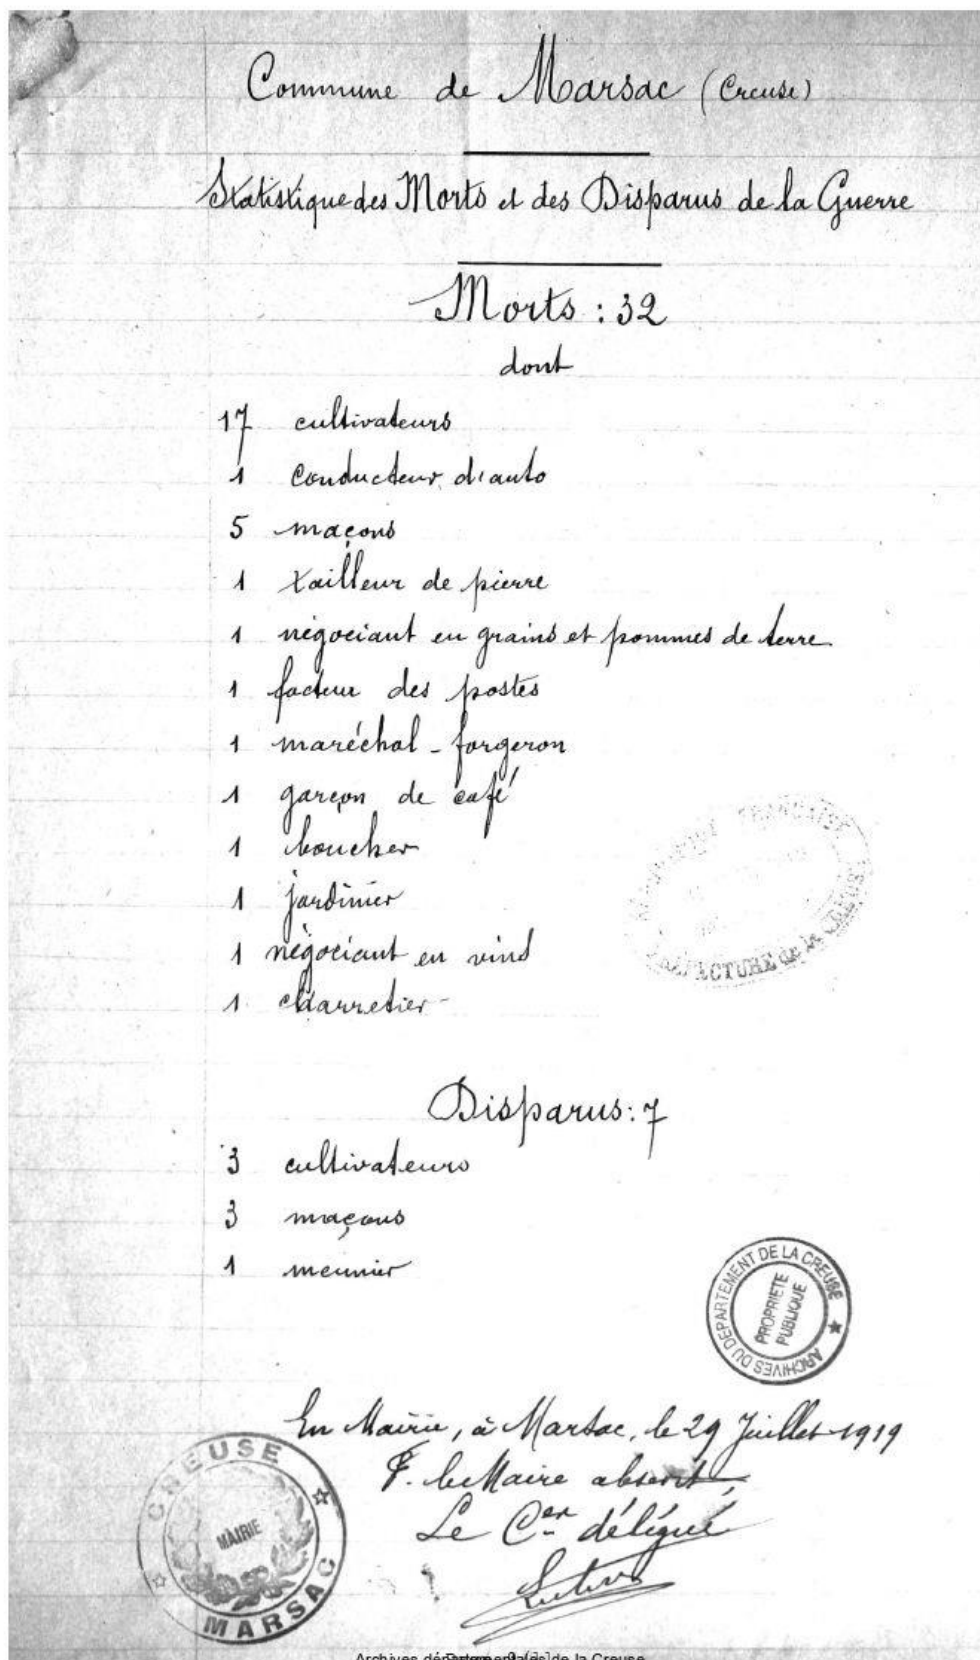 Commune de Marsac (Creuse)
Statistique des Morts et des Disparus de la Guerre
Morts : 32
dont
17 cultivateurs
1 conducteur d'auto
5 maçons
1 tailleur de pierre
1 négociant en grains et pommes de terre
1 facteur des postes
1 maréchal - forgeron
1 garçon de café
1 boucher
1 jardinier
1 négociant en vins
1 charretier
RÉPUBLIQUE FRANÇAISE
PRÉFECTURE de la CREUSE
Disparus : 7
3 cultivateurs
3 maçons
1 meunier
ARCHIVES DU DEPARTEMENT DE LA CREUSE
PROPRIETE
PUBLIQUE
En Mairie, à Marsac, le 29 Juillet 1919
P. le Maire absent,
Le Cer délégué
CREUSE
MAIRIE
MARSAC
Archives départementales de la Creuse